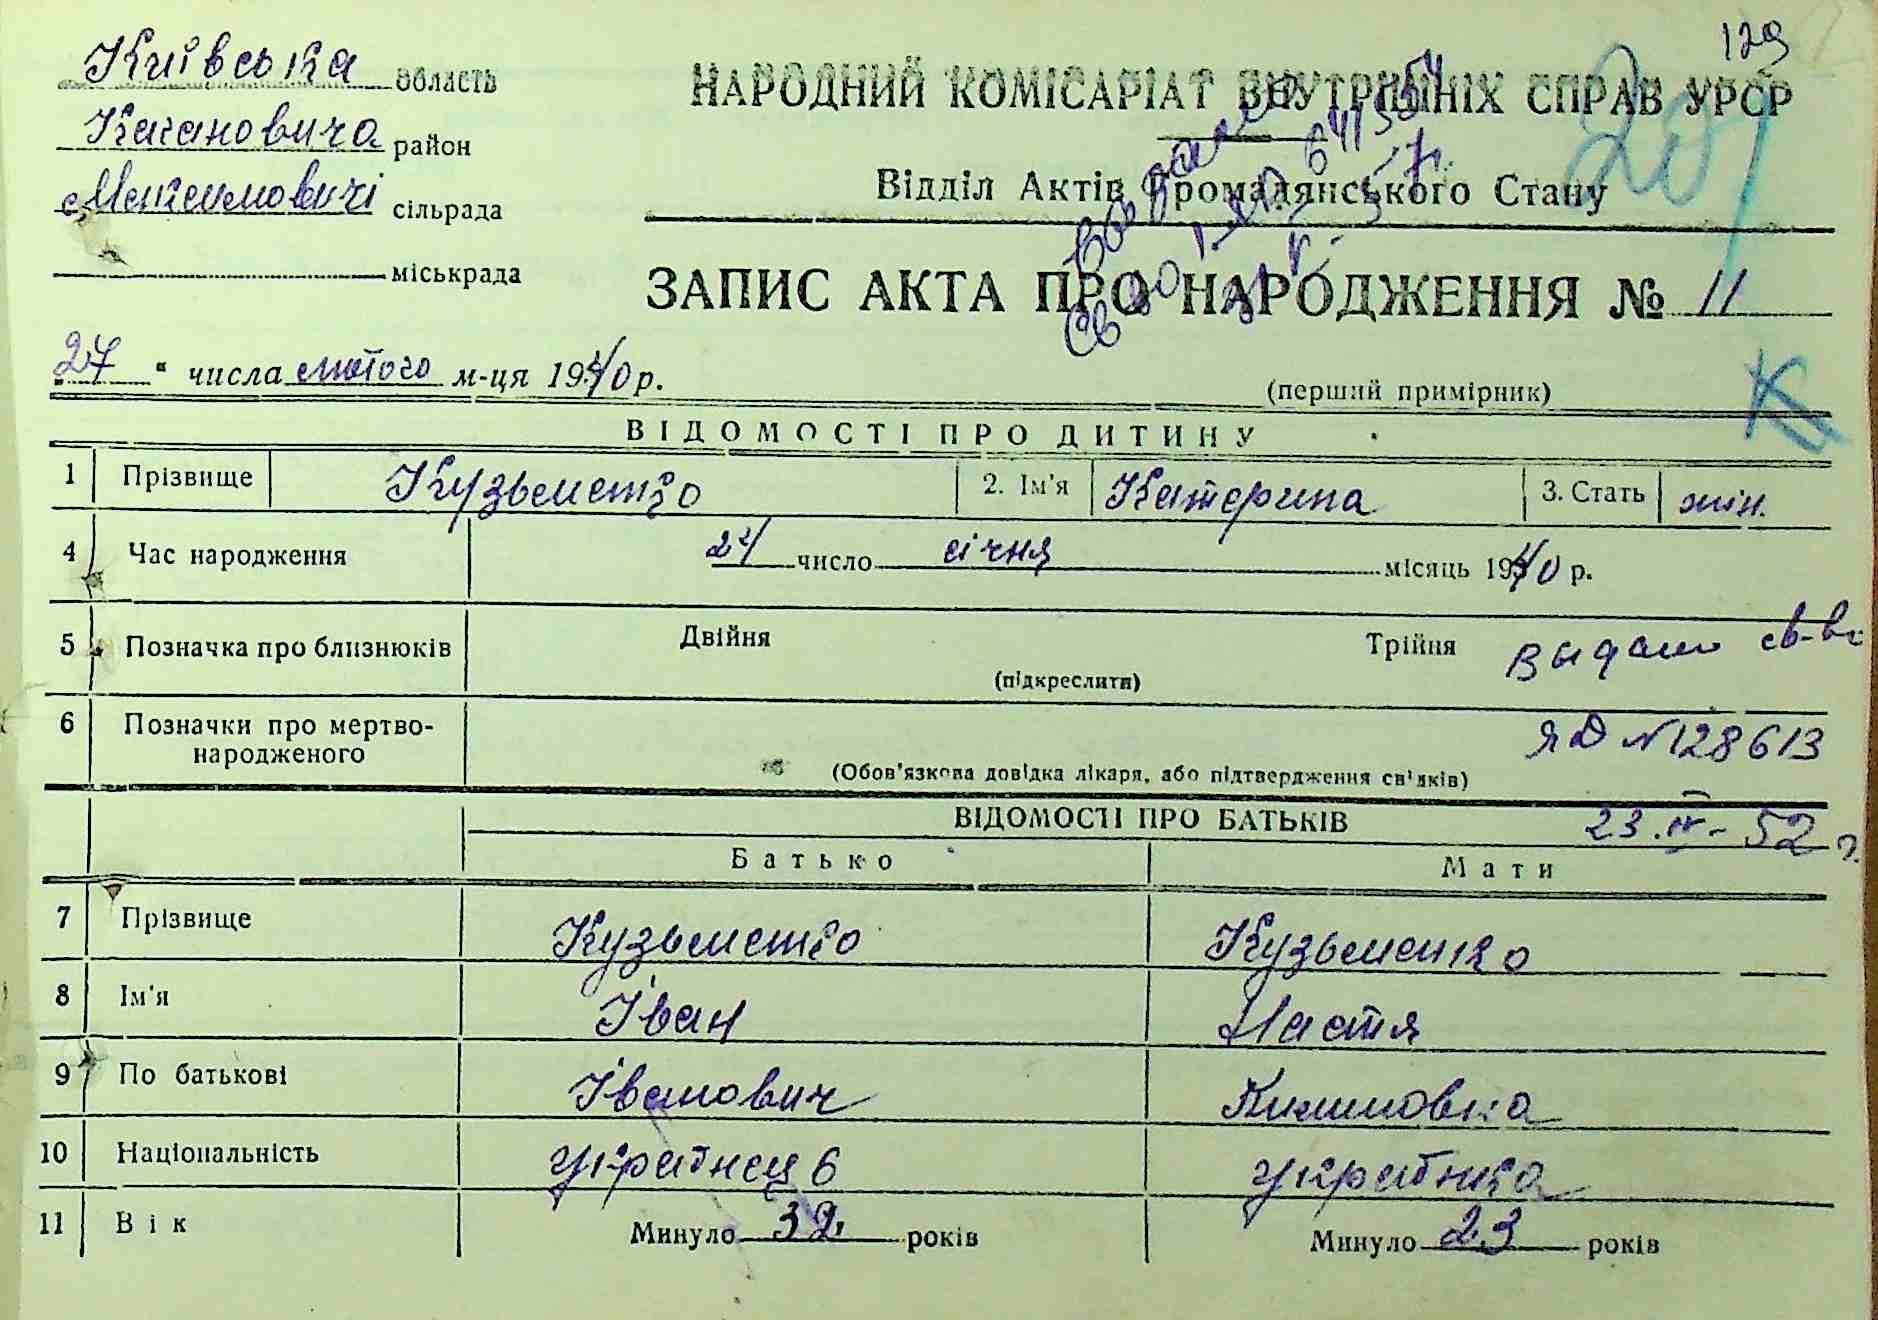 Київська область
129
Кагановича район
с. Максимовичі сільрада
міськрада
НАРОДНИЙ КОМІСАРІАТ ВНУТРІШНІХ СПРАВ УРСР
Відділ Актів Громадянського Стану
207
ЗАПИС АКТА ПРО НАРОДЖЕННЯ № 11
„27“ числа лютого м-ця 1940 р.
(перший примірник)
К
ВІДОМОСТІ ПРО ДИТИНУ
1 Прізвище Кузьменко 2. Ім'я Катерина 3. Стать жін.
4 Час народження 24 число січня місяць 1940 р.
5 Позначка про близнюків Двійня Трійня
(підкреслити)
Выдано св-во
6 Позначки про мертвонародженого
(Обов'язкова довідка лікаря, або підтвердження свідків)
ЯД №128613
23.IV-52 г.
ВІДОМОСТІ ПРО БАТЬКІВ
Батько Мати
7 Прізвище Кузьменко Кузьменко
8 Ім'я Іван Настя
9 По батькові Іванович Климовна
10 Національність українець українка
11 Вік Минуло 32 років Минуло 23 років